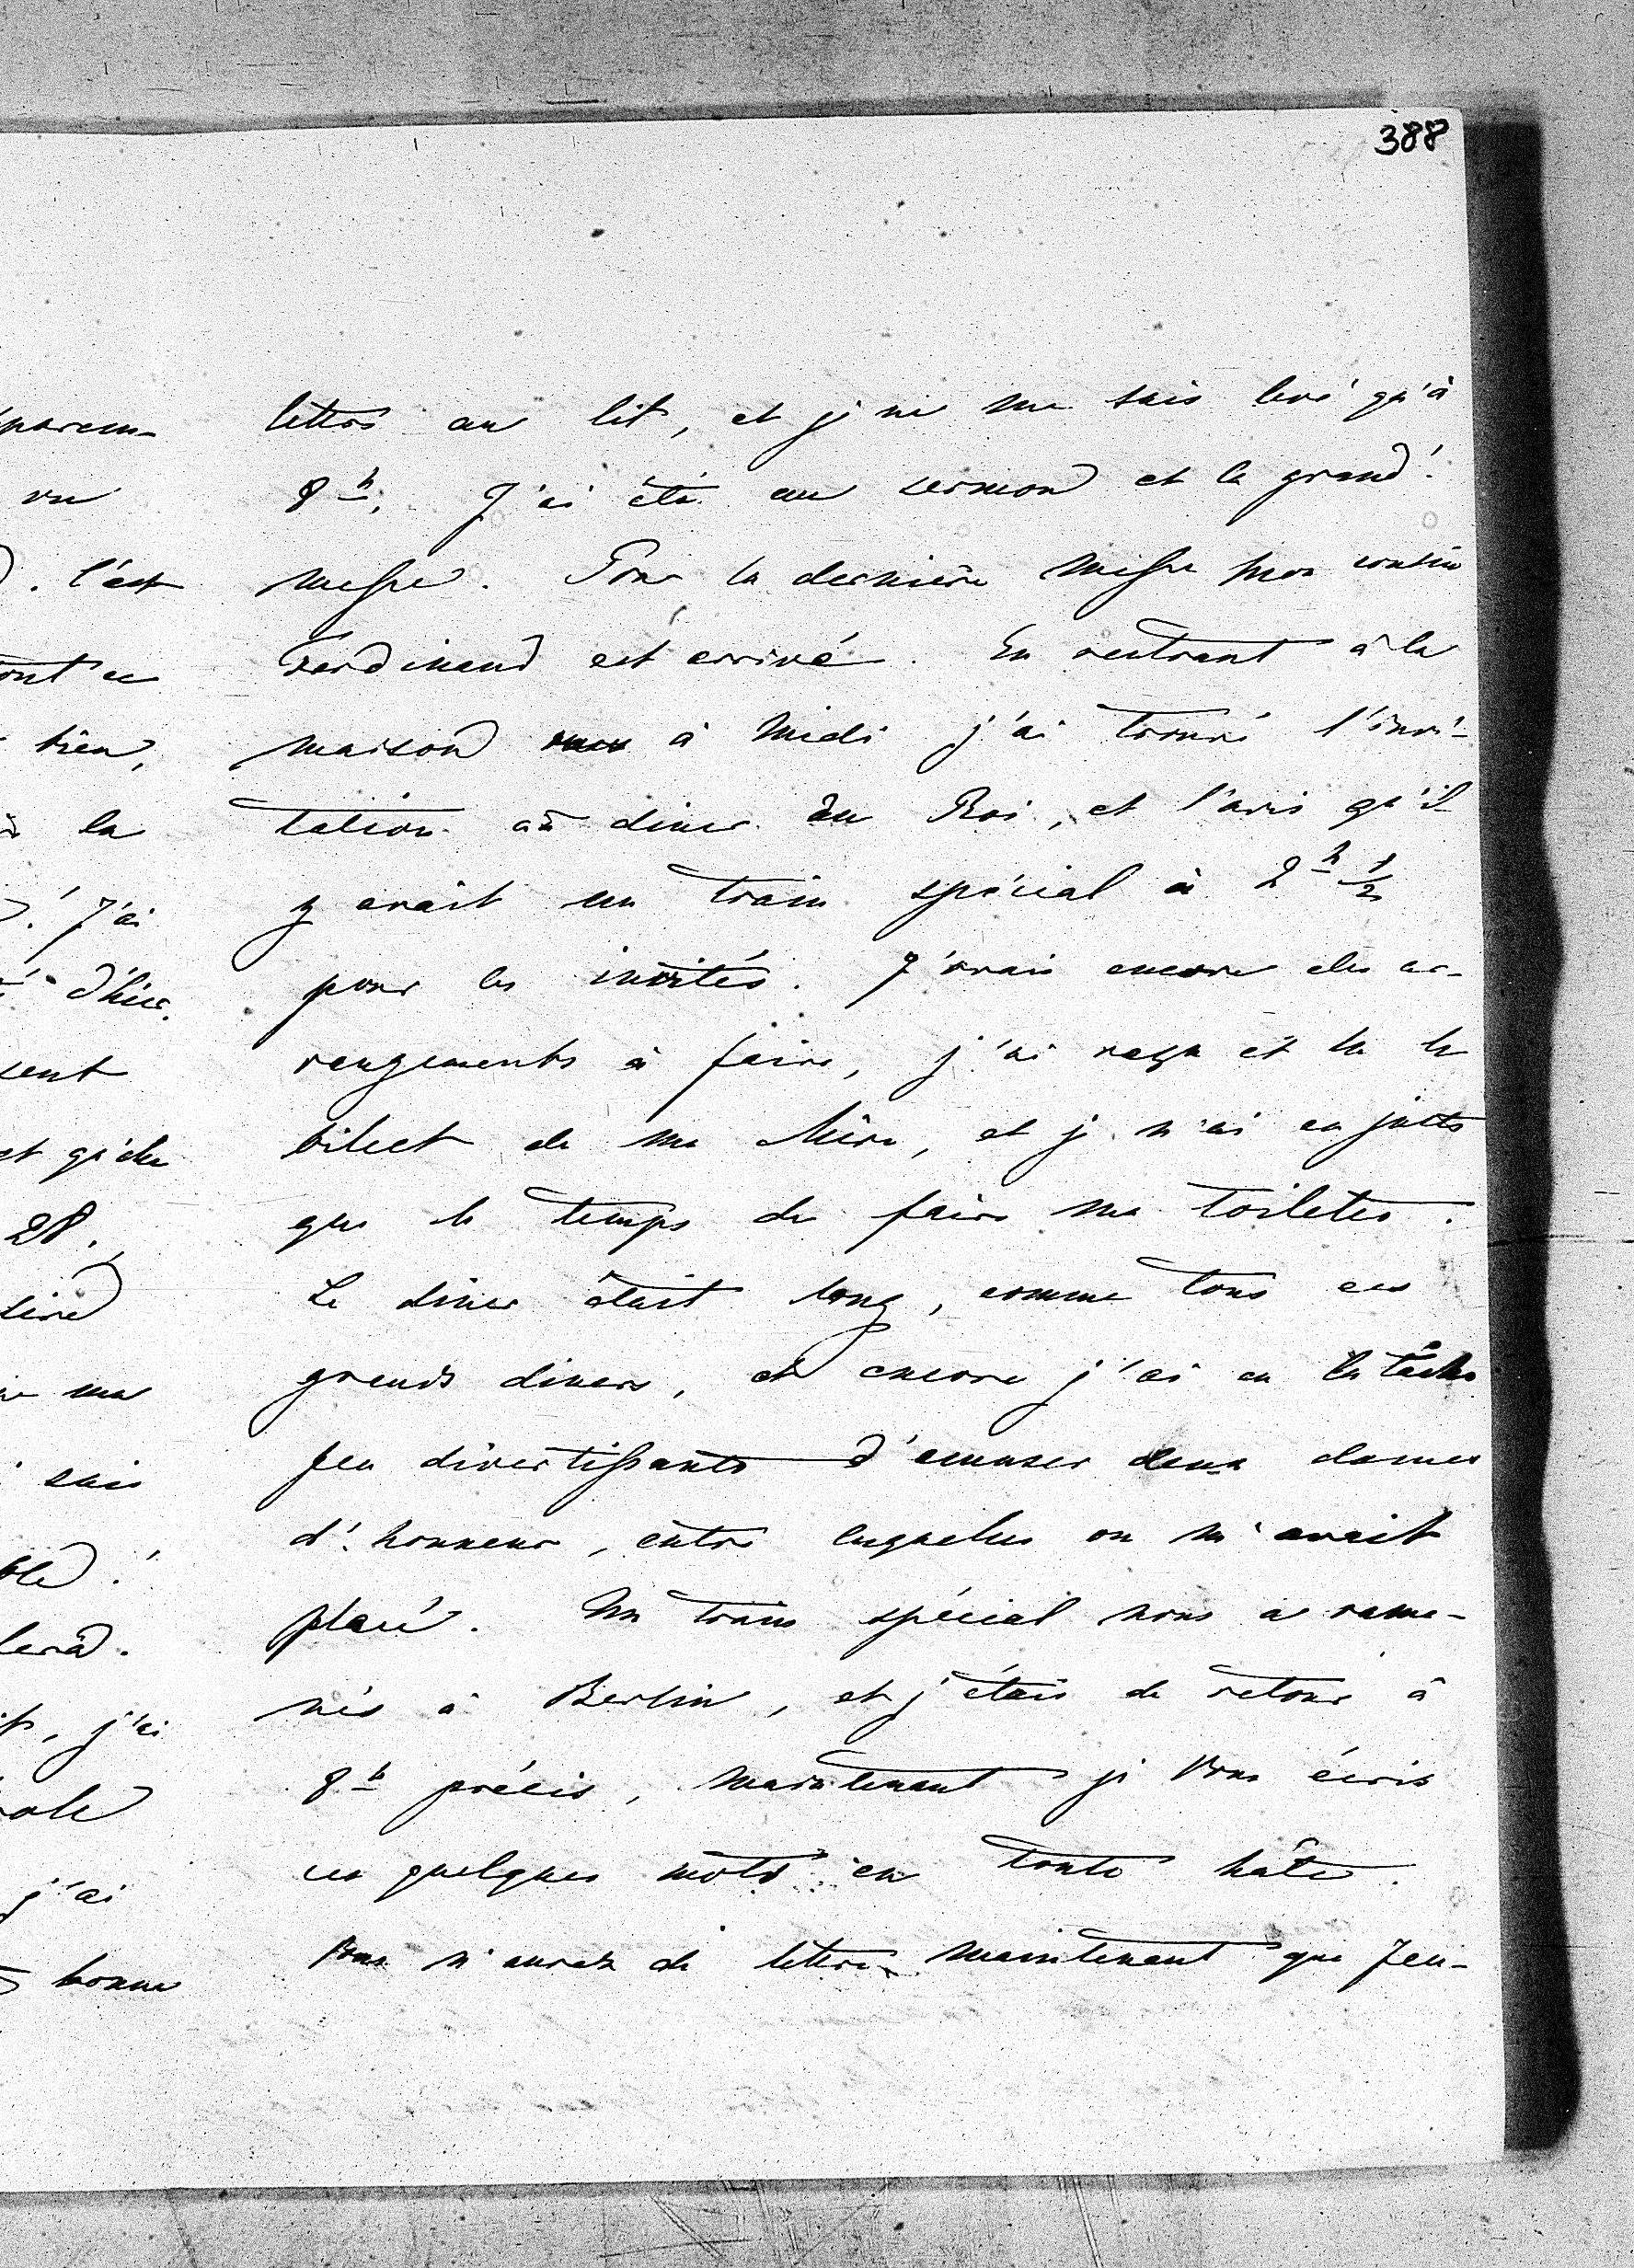 388
lettre au lit, et je ne me suis levé qu'à
8h. J'ai été au sermon et la grand'
messe. Pour la dernière messe mon cousin
Ferdinand est arrivé. En rentrant à la
maison à midi j'ai trouvé l'invi-
tation au diner du Roi, et l'avis qu'il
y avait un train spécial à 2h 1/2
pour les invités. J'avais encore des ar-
rangements à faire, j'ai reçu et lu le
billet de ma Mère, et je n'ai eu juste
que le temps de faire ma toilette.
Le diner était long, comme tous ces
grands diners, et encore j'ai eu la tâche
peu divertissante d'amuser deux dames
d'honneur, entre lesquelles on m'avait
placé. Un train spécial nous a rame-
nés à Berlin, et j'étais de retour à
8h précis, maintenant je Vous écris
ces quelques mots en toute hâte.
Vous n'aurez de lettre maintenant que Jeu-
parem-
vu
. C'est
bien,
la
! J'ai
d'hier.
sent
et qu'elle
28.
ma
suis
, j'ai
j'ai
bonne